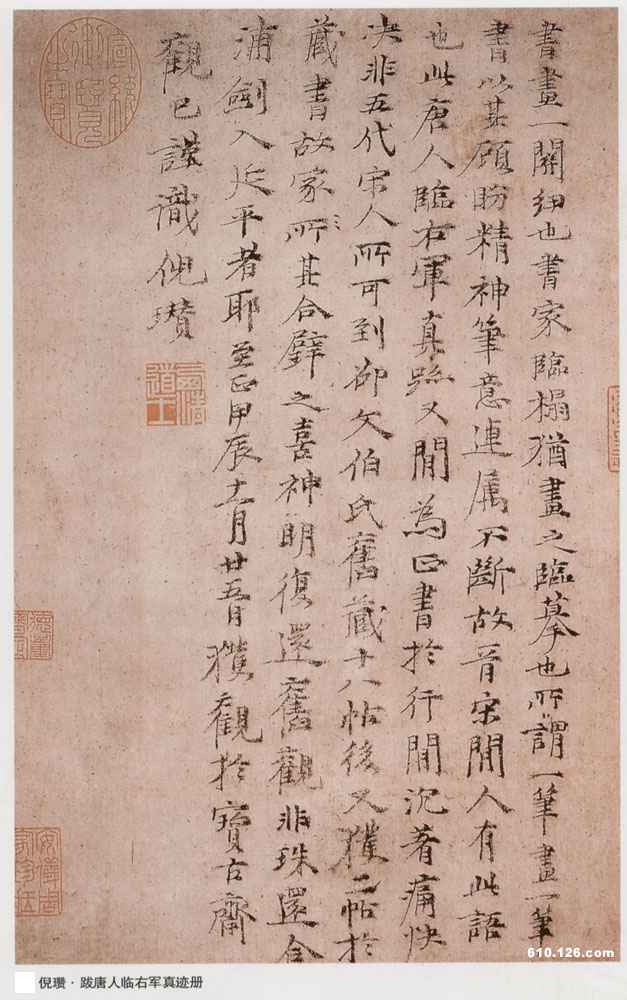 書畫一關紐也書家臨榻猶畫之臨摹也所謂一筆畫一筆
書以其顧盼精神筆意連属不斷故晉宋間人有此語
也此唐人臨右軍真跡又間為正書於行間沉著痛快
决非五代宋人所可到邵文伯氏舊藏十八帖後又獲二帖於
藏書故家所其合璧之喜神明復還舊觀非珠還合
浦劍入延平者耶至正甲辰十二月廿五日獲觀於寶古齋
觀已謹識倪瓚
宣統御覽之寶
三清道士
安儀周家珍藏
倪瓒·跋唐人临右军真迹册
610.126.com